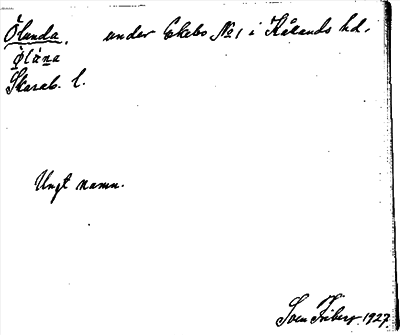 Ölunda. under Ekebo No 1 i Kållands hd.
Ölŭna
Skarab. l.
Ungt namn.
Sven Friberg 1927